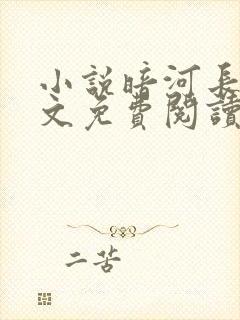 小說暗河長
文免費閱讀
二苦